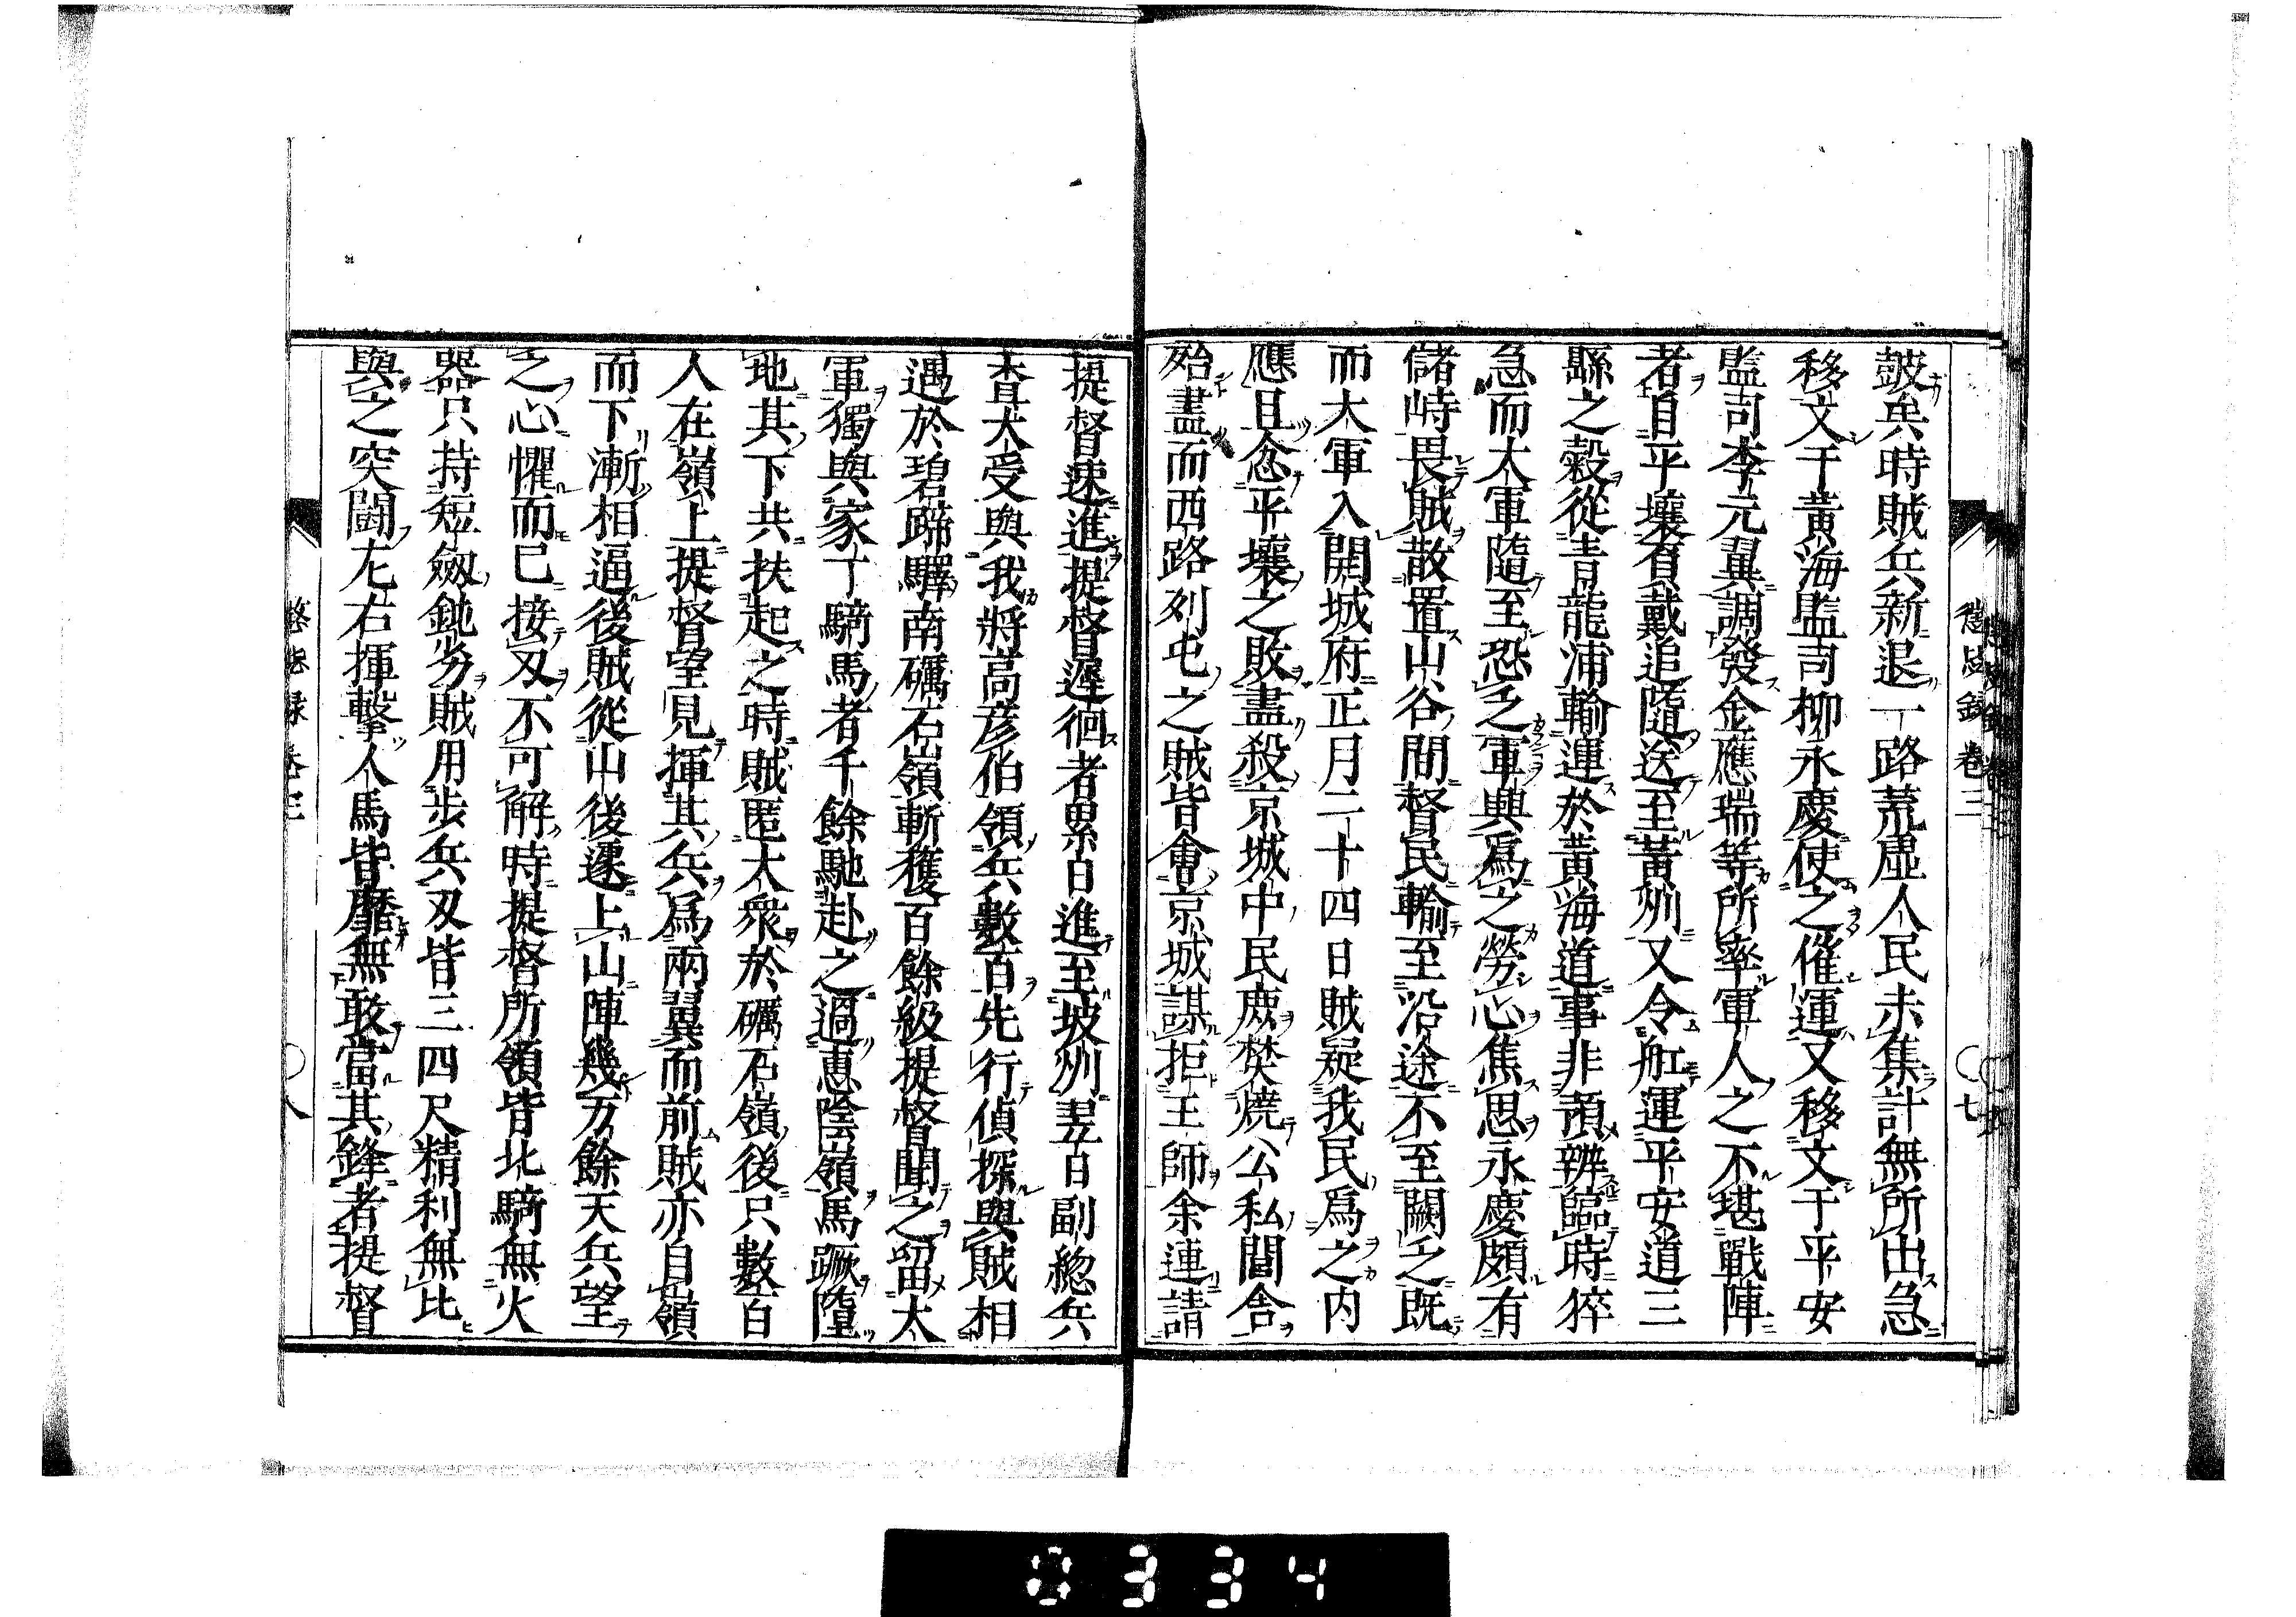 皷矣時賊兵新退一路荒虛人民未集計無所出急
移文于黃海監司柳永慶使之催運又移文于平安
監司李元翼調發金應瑞等所率軍人之不堪戰陣
者自平壤有戴追隨送至黃州又令舡運平安道三
縣之穀從青龍浦輸運於黃海道事非預辨臨時猝
急而大軍隨至恐乏軍興爲之勞心焦思永慶頗有
儲峙畏賊散置山谷間督民輸至沿途不至闕乏既
而大軍入開城府正月二十四日賊疑我民爲之內
應且忿平壤之敗盡殺京城中民庶焚燒公私閭舍
殆盡而西路列屯之賊皆會京城謀拒王師余連請
懲毖錄 卷三 〇七
提督速進提督遲徊者累日進至坡州翌日副緫兵
查大受與我將高彥伯領兵數百先行偵探與賊相
遇於碧蹄驛南礪石嶺斬獲百餘級提督聞之留大
軍獨與家丁騎馬者千餘馳赴之過惠陰嶺馬蹶墮
地其下共扶起之時賊匿大衆於礪石嶺後只數百
人在嶺上提督望見揮其兵爲兩翼而前賊亦自嶺
而下漸相逼後賊從山後遽上山陣幾万餘天兵望
之心懼而已接刄不可解時提督所領皆北騎無火
器只持短劔鈍劣賊用步兵刄皆三四尺精利無比
與之突鬪左右揮擊人馬皆靡無敢當其鋒者提督
懲毖録 卷三 〇八
0334